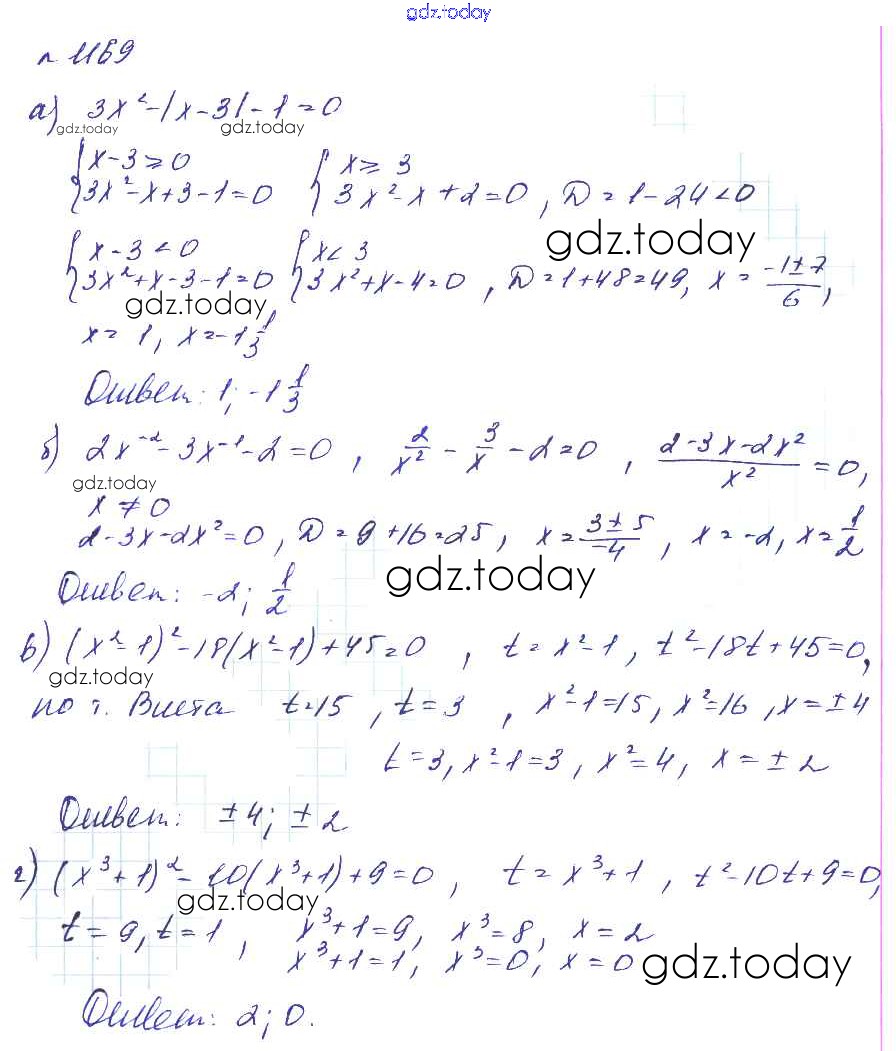 gdz.today
n 1169
а) 3x² - |x - 3| - 1 = 0
gdz.today gdz.today
{x - 3 ≥ 0 {x ≥ 3
{3x² - x + 3 - 1 = 0 {3x² - x + 2 = 0, D = 1 - 24 < 0
gdz.today
{x - 3 < 0 {x < 3
{3x² + x - 3 - 1 = 0 {3x² + x - 4 = 0, D = 1 + 48 = 49, x = (-1 ± 7)/6,
gdz.today
x = 1, x = -1 1/3
Ответ: 1; -1 1/3
б) 2x⁻² - 3x⁻¹ - 2 = 0, 2/x² - 3/x - 2 = 0, (2 - 3x - 2x²)/x² = 0,
gdz.today
x ≠ 0
2 - 3x - 2x² = 0, D = 9 + 16 = 25, x = (3 ± 5)/-4, x = -2, x = 1/2
gdz.today
Ответ: -2; 1/2
в) (x² - 1)² - 18(x² - 1) + 45 = 0, t = x² - 1, t² - 18t + 45 = 0,
gdz.today
по т. Виета t = 15, t = 3, x² - 1 = 15, x² = 16, x = ± 4
t = 3, x² - 1 = 3, x² = 4, x = ± 2
Ответ: ± 4; ± 2
г) (x³ + 1)² - 10(x³ + 1) + 9 = 0, t = x³ + 1, t² - 10t + 9 = 0,
gdz.today
t = 9, t = 1, x³ + 1 = 9, x³ = 8, x = 2
x³ + 1 = 1, x³ = 0, x = 0
gdz.today
Ответ: 2; 0.